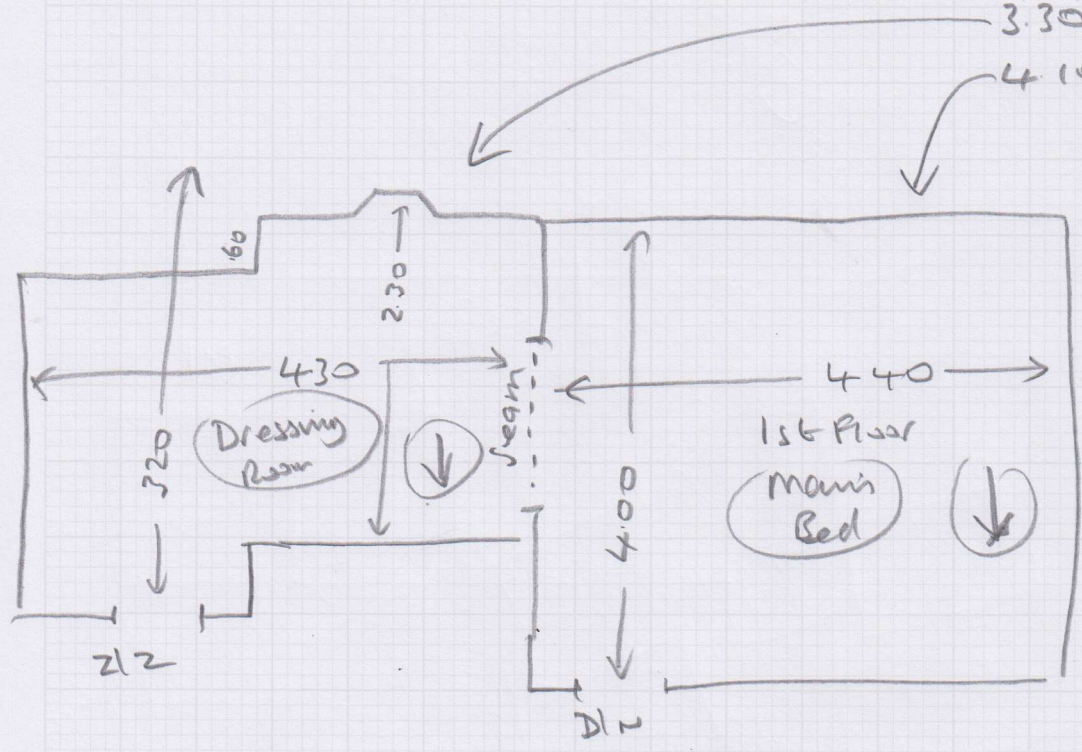 3.30
4.10
.60
2.30
430
440
320
Dressing
Room
Seam
1st Floor
Main
Bed
4.00
Z/Z
D/N